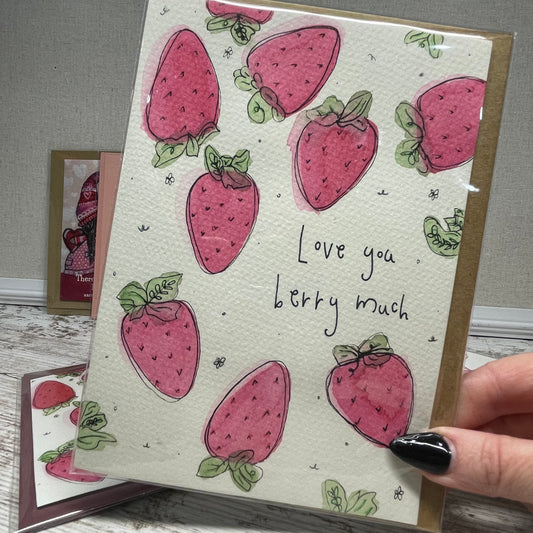 Love you
berry much